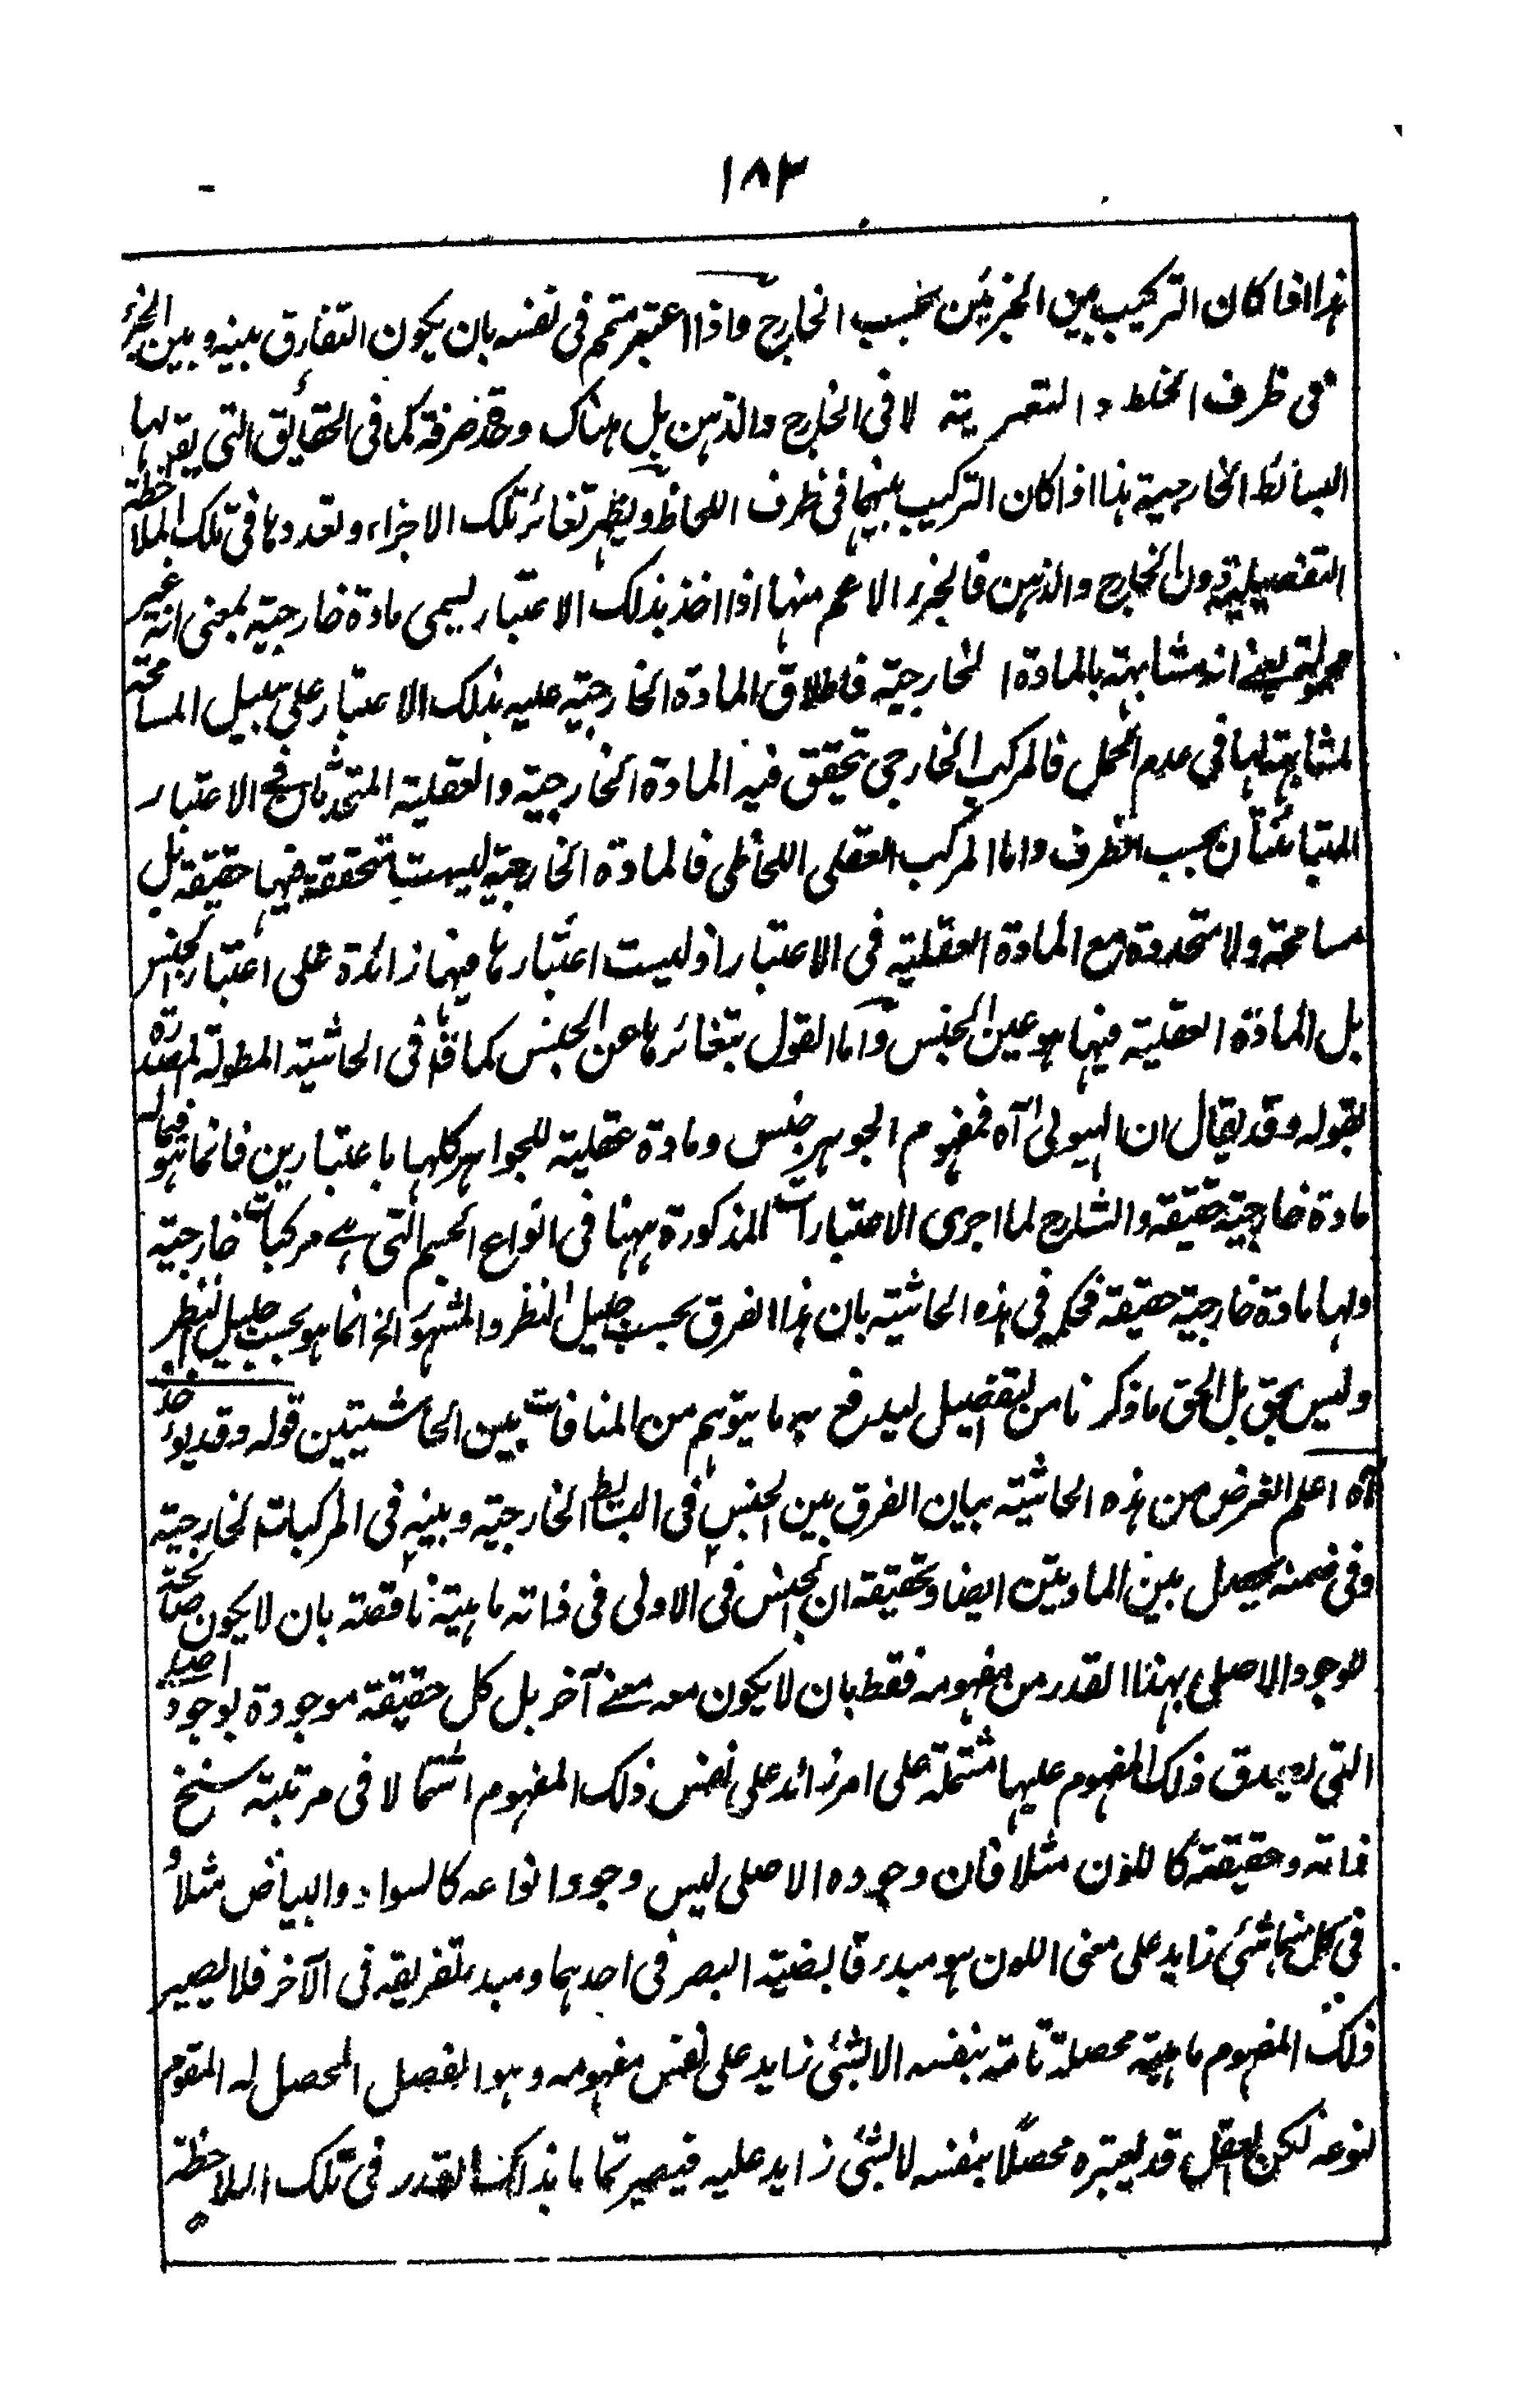 ١٨٣
هذا اذا كان التركيب بين الجزئين بحسب الخارج واذا اعتبر متحم فى نفسه بان يكون التفارق بينه وبين الجزء
فى ظرف الخلط والتعرية لا فى الخارج والذهن بل هناك وحدة صرفة كما فى الحقائق التى يقر بها
البسائط الخارجية هذا اذا كان التركيب بينهما فى ظرف اللحاظ ويظهر تغائر تلك الاجزاء وتعددها فى تلك الملاحظة
التفصيلية دون الخارج والذهن فالجزء الاعم منها اذا اخذ بذلك الاعتبار ليسمى مادة خارجية بمعنى انه غير
محمولة يعنى انه مشابهة بالمادة الخارجية فاطلاق المادة الخارجية عليه بذلك الاعتبار على سبيل المسامحة
لمشابهتها لها فى عدم الحمل فالمركب الخارجى تحقق فيه المادة الخارجية والعقلية المتحدثان فى الاعتبار
المتبائنتان بحسب الظرف واما المركب العقلى اللحاظى فالمادة الخارجية ليست متحققة فيها حقيقة بل
مسامحة ولا متحدة مع المادة العقلية فى الاعتبار اذ ليست اعتبارها فيها زائدة على اعتبار الجنس
بل المادة العقلية فيها هو عين الجنس واما القول بتغائرها عن الجنس كما قال فى الحاشية المطولة المصدرة
بقوله وقد يقال ان الهيولى آه فمفهوم الجوهر جنس ومادة عقلية للجواهر كلها باعتبارين فانما هو فيما له
مادة خارجية حقيقة والشارح لما اجرى الاعتبارات المذكورة ههنا فى انواع الجسم التى هى مركبات خارجية
ولها مادة خارجية حقيقة فحكم فى هذه الحاشية بان هذا الفرق بحسب جليل النظر والمشهور الخ انما هو بحسب جليل النظر
وليس بحق بل الحق ما ذكرنا من التفصيل ليدفع به ما يتوهم من المنافات بين الحاشيتين قوله وقد يوخذ
آه اعلم الغرض من هذه الحاشية بيان الفرق بين الجنس فى البسائط الخارجية وبينه فى المركبات الخارجية
وفى ضمنه يحصل بين المادتين ايضا وتحقيقه ان الجنس فى الاولى فى ذاته ماهية ناقصة بان لا يكون صالحة
للوجود الاصلى بهذا القدر من مفهومه فقط بان لا يكون معه معنى آخر بل كل حقيقة موجودة بوجود اصلى
التى يصدق ذلك المفهوم عليها مشتملة على امر زائد على نفس ذلك المفهوم اشتمالا فى مرتبة سنخ
ذاته وحقيقته كاللون مثلا فان وجوده الاصلى ليس وجود انواعه كالسواد والبياض مثلا و
فى كل منهما شئ زايد على معنى اللون هو مبدء قابضية البصر فى احدهما ومبدء تفريقه فى الآخر فلا يصير
ذلك المفهوم ماهية محصلة تامة بنفسه الا بشئ زايد على نفس مفهومه وهو الفصل المحصل له المقوم
لنوعه لكن العقل قد يعتبره محصلا بنفسه لا بشئ زايد عليه فيصير تماما بذلك القدر فى تلك الملاحظة